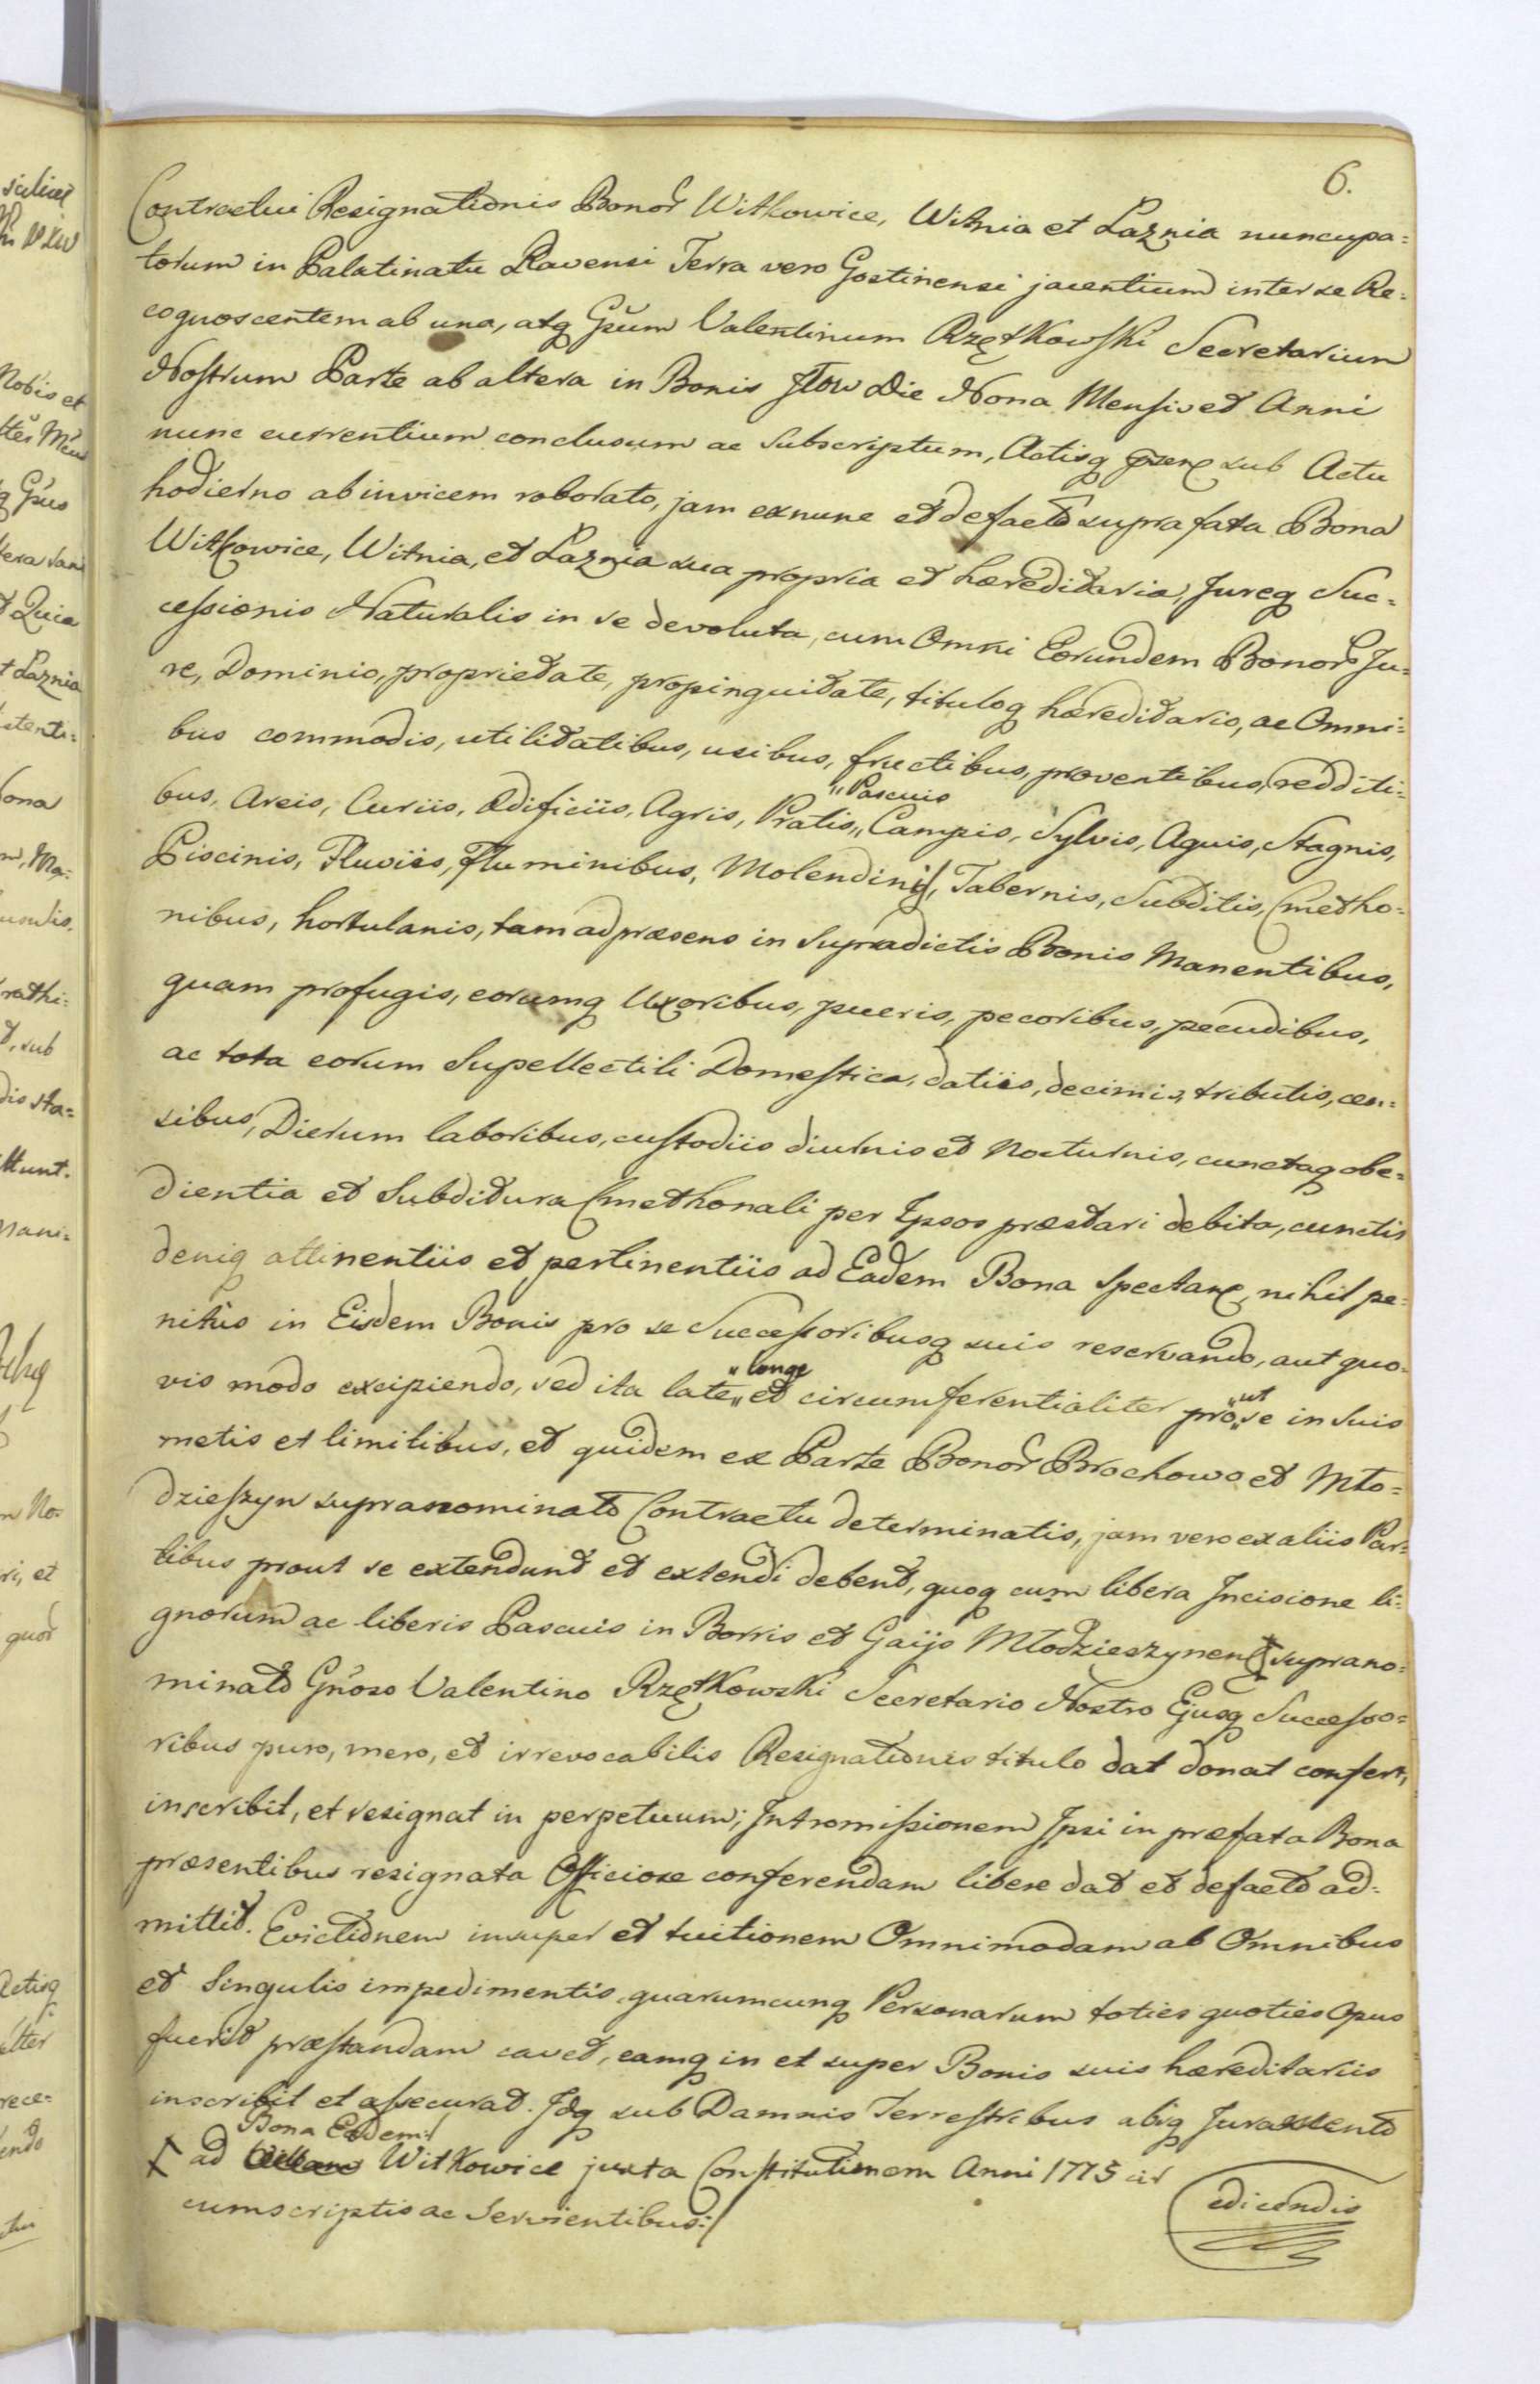 6.
Contractui Resignationis Bonor Witkowice, Witnia et Laznia nuncupa=
torum in Palatinatu Ravensi Terra vero Gostinensi jacentium inter se Re=
cognoscentem ab una, atq Gsum Valentinum RzętKowski Secretarium
Nostrum Parte ab altera in Bonis Iłow Die Nona Mensis et Anni
nunc currentium conclusum ac Subscriptum, Actisq sub Actu
hodierno ab invicem roborato, jam exnunc et defacto suprafata Bona
Witkowice, Witnia, et Laznia sua propria et hæreditaria, Jureq Suc=
cessionis Naturalis in se devoluta, cum Omni Eorundem Bonor Ju=
re, Dominio, proprietate, propinquitate, tituloq hæreditario, ac Omni=
bus commodis, utilitatibus, usibus, fructibus, proventibus, redditi=
"Pascuis
bus, Areis, Curiis, Ædificiis, Agris, Pratis,, Campis, Sylvis, Aquis, Stagnis,
Piscinis, Fluviis, Fluminibus, Molendinis, Tabernis, Subditis, Cmetho=
nibus, hortulanis, tam ad præsens in Supradictis Bonis Manentibus,
quam profugis, eorumq Uxoribus, pueris, pecoribus, pecudibus,
ac tota eorum Supellectili Domestica, datiis, decimis, tributis, cen=
sibus, Dierum laboribus, custodiis diurnis et Nocturnis, cunctaq obe=
dientia et Subditura Cmethonali per Ipsos præstari debita, cunctis
deniq attinentiis et pertinentiis ad Eadem Bona Spectan, nihil pe=
nitus in Eisdem Bonis pro se Successoribusq suis reservando, aut quo=
"longe
vis modo excipiendo, sed ita late,, et circumferentialiter pro"ut se in Suis
metis et limitibus, et quidem ex Parte Bonor Brochowo et Mło=
dzieszyn supranominato Contractu determinatis, jam vero ex aliis Par=
tibus prout se extendunt et extendi debent, quoq cum libera Incisione li=
gnorum ac liberis Pascuis in Borris et Gaijs Młodzieszynen suprano=
minato Gnoso Valentino RzętKowski Secretario Nostro Ejusq Successo=
ribus puro, mero, et irrevocabilis Resignationis titulo dat donat confert,
inscribit, et resignat in perpetuum; Intromissionem Ipsi in præfata Bona
præsentibus resignata Officiose conferendam libere dat et defacto ad=
mittit. Evictionem insuper et tuitionem Omnimodam ab Omnibus
et Singulis impedimentis quarumcunq Personarum toties quoties Opus
fuerit præstandam cavet, eamq in et super Bonis suis hæreditariis
inscribit et assecurat. Idq sub Damnis Terrestribus absq Juramento
Bona Eadem
ad Witkowice juxta Constitutionem Anni 1775 cir
cumscriptis ac Servientibus:/
edicendis